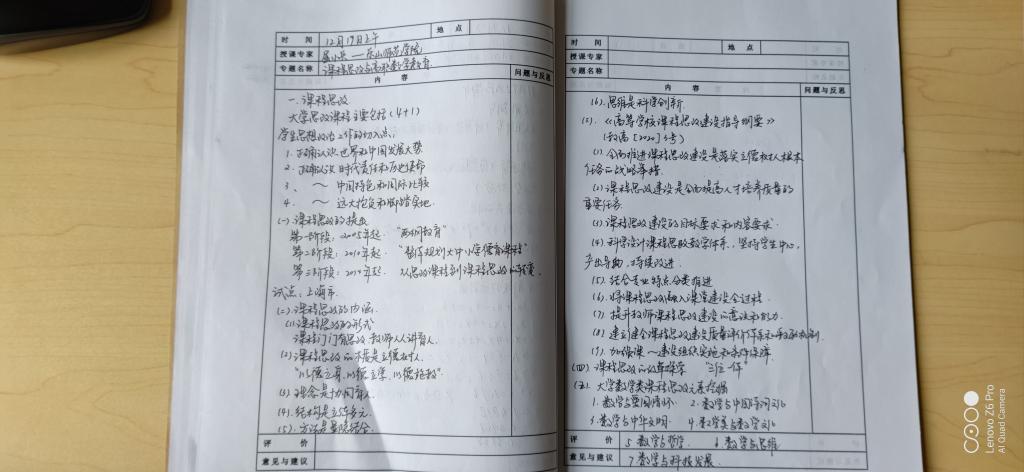 时 间 12月19日上午 地 点
授课专家 乐山师范学院
专题名称 课程思政与高校数学教育
内 容 问题与反思
一. 课程思政
大学思政课程主要包括(4+1)
学生思想政治工作的切入点:
1. 正确认识世界和中国发展大势
2. 正确认识时代责任和历史使命
3. ~ 中国特色和国际比较
4. ~ 远大抱负和脚踏实地.
(一)课程思政的提出
第一阶段: 2005年起. "两纲教育"
第二阶段: 2010年起. "整体规划大中小学德育课程"
第三阶段: 2014年起. 从思政课程到课程思政的转变.
试点: 上海市.
(二)课程思政的内涵
(1)课程思政的形式
课程门门有思政 教师人人讲育人.
(2)课程思政的本质是立德树人.
"以德立身, 以德立学, 以德施教"
(3). 理念是协同育人.
(4). 结构是立体多元
(5). 方法是显隐结合.
评 价
意见与建议
时 间 地 点
授课专家
专题名称
内 容 问题与反思
(6). 思维是科学创新
(三). 《高等学校课程思政建设指导纲要》
(教高[2020]3号)
(1) 全面推进课程思政建设是落实立德树人根本
任务的战略举措
(2) 课程思政建设是全面提高人才培养质量的
重要任务
(3) 课程思政建设的目标要求和内容要求.
(4) 科学设计课程思政教学体系. 坚持学生中心,
产出导向, 持续改进.
(5). 结合专业特点分类推进
(6). 将课程思政融入课堂建设全过程.
(7). 提升教师课程思政建设的意识和能力.
(8). 建立健全课程思政建设质量评价体系和激励机制
(9). 加强课~建设组织实施和条件保障
(四) 课程思政的改革探学 "三位一体"
(五). 大学数学类课程思政元素挖掘
1. 数学与爱国情怀. 2. 数学与中国
3. 数学与中华文明. 4. 数学美与数学文化
评 价 5 数学与哲学 6 数学与思维
意见与建议 7 数学与科技发展.
Lenovo Z6 Pro
AI Quad Camera